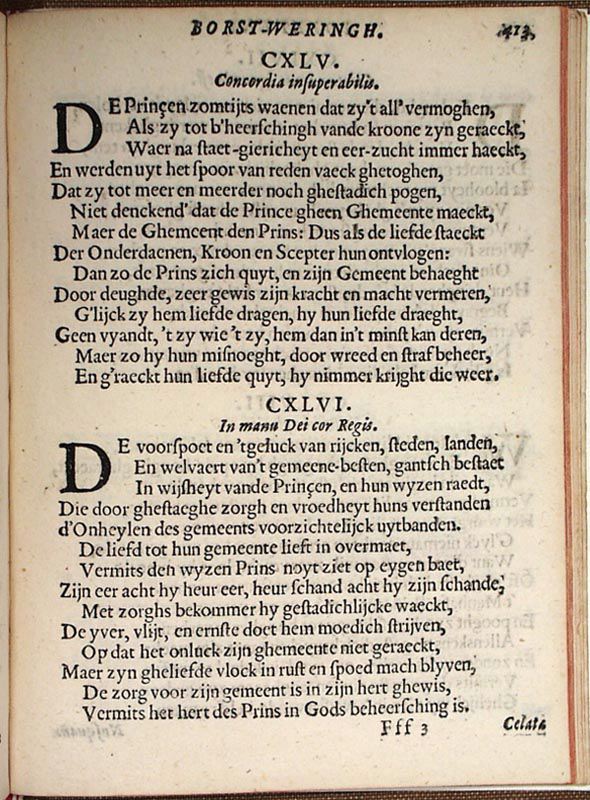 BORST-WERINGH. 413
CXLV.
Concordia insuperabilis.
DE Prinçen zomtijts waenen dat zy't all' vermoghen,
Als zy tot b'heerschingh vande kroone zyn geraeckt,
Waer na staet-giericheyt en eer-zucht immer haeckt,
En werden uyt het spoor van reden vaeck ghetoghen,
Dat zy tot meer en meerder noch ghestadich pogen,
Niet denckend' dat de Prince gheen Ghemeente maeckt,
Maer de Ghemeent den Prins: Dus als de liefde staeckt
Der Onderdaenen, Kroon en Scepter hun ontvlogen:
Dan zo de Prins zich quyt, en zijn Gemeent behaeght
Door deughde, zeer gewis zijn kracht en macht vermeren,
G'lijck zy hem liefde dragen, hy hun liefde draeght,
Geen vyandt, 't zy wie 't zy, hem dan in't minst kan deren,
Maer zo hy hun misnoeght, door wreed en straf beheer,
En g'raeckt hun liefde quyt, hy nimmer krijght die weer.
CXLVI.
In manu Dei cor Regis.
DE voorspoet en 'tgeluck van rijcken, steden, landen,
En welvaert van't gemeene-besten, gantsch bestaet
In wijsheyt vande Prinçen, en hun wyzen raedt,
Die door ghestaeghe zorgh en vroedheyt huns verstanden
d'Onheylen des gemeents voorzichtelijck uytbanden.
De liefd tot hun gemeente lieft in overmaet,
Vermits den wyzen Prins noyt ziet op eygen baet,
Zijn eer acht hy heur eer, heur schand acht hy zijn schande,
Met zorghs bekommer hy gestadichlijcke waeckt,
De yver, vlijt, en ernste doet hem moedich strijven,
Op dat het onluck zijn ghemeente niet geraeckt,
Maer zyn gheliefde vlock in rust en spoed mach blyven,
De zorg voor zijn gemeent is in zijn hert ghewis,
Vermits het hert des Prins in Gods beheersching is.
Fff 3 Celata